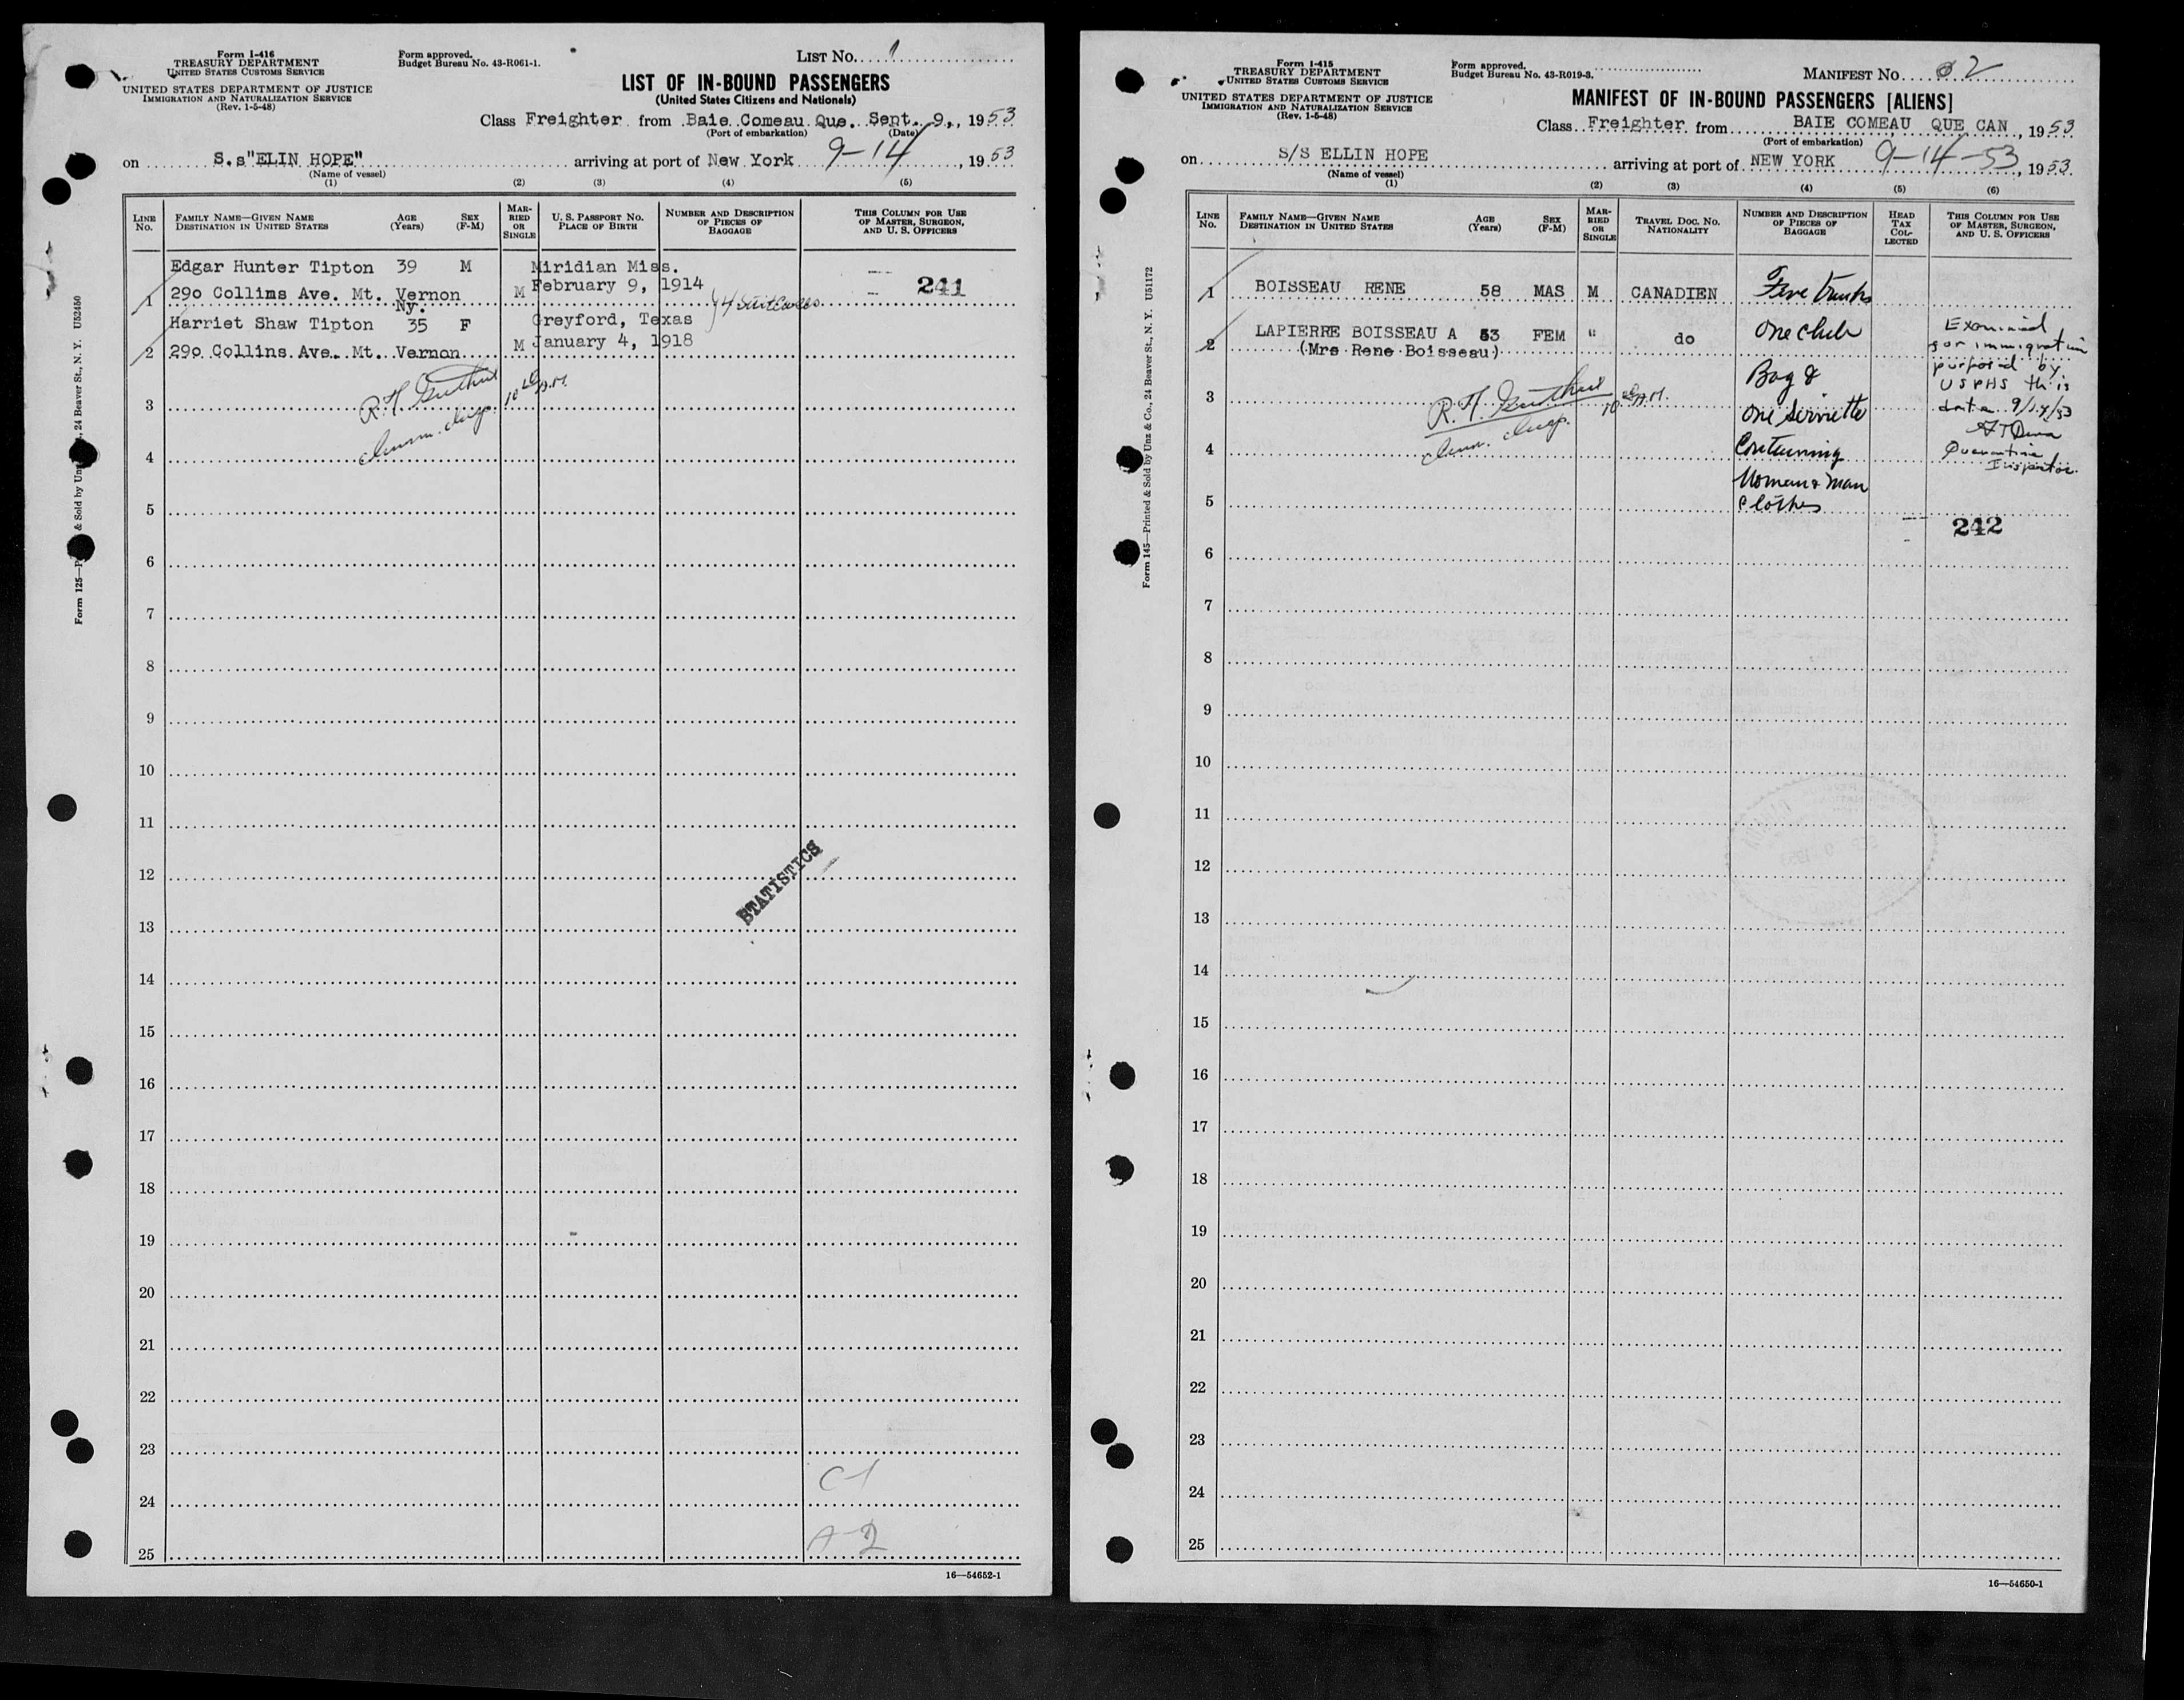 Form I-416
TREASURY DEPARTMENT
UNITED STATES CUSTOMS SERVICE
UNITED STATES DEPARTMENT OF JUSTICE
IMMIGRATION AND NATURALIZATION SERVICE
(Rev. 1-5-48)
Form approved.
Budget Bureau No. 43-R061-1.
LIST NO. 1
LIST OF IN-BOUND PASSENGERS
(United States Citizens and Nationals)
Class Freighter from Baie Comeau Que. Sept. 9, 1953
(Port of embarkation) (Date)
on S.s"ELIN HOPE" arriving at port of New York 9-14, 1953
(Name of vessel)
(1) (2) (3) (4) (5)
LINE No.
FAMILY NAME—GIVEN NAME
DESTINATION IN UNITED STATES
AGE (Years)
SEX (F-M)
MARRIED OR SINGLE
U. S. PASSPORT NO.
PLACE OF BIRTH
NUMBER AND DESCRIPTION OF PIECES OF BAGGAGE
THIS COLUMN FOR USE OF MASTER, SURGEON, AND U. S. OFFICERS
Edgar Hunter Tipton 39 M Miridian Miss.
1 290 Collins Ave. Mt. Vernon M February 9, 1914 4 Suitcases 241
Ny.
Harriet Shaw Tipton 35 F Greyford, Texas
2 290 Collins Ave. Mt. Vernon M January 4, 1918
R. H.
Imm. Insp.
3
4
5
6
7
8
9
10
11
12
STATISTICS
13
14
15
16
17
18
19
20
21
22
23
C-1
24
A-2
25
16—54652-1
& Sold by 24 Beaver St., N. Y. U52450
Form 125—
Form I-415
TREASURY DEPARTMENT
UNITED STATES CUSTOMS SERVICE
UNITED STATES DEPARTMENT OF JUSTICE
IMMIGRATION AND NATURALIZATION SERVICE
(Rev. 1-5-48)
Form approved.
Budget Bureau No. 43-R019-3.
MANIFEST NO. 2
MANIFEST OF IN-BOUND PASSENGERS [ALIENS]
Class Freighter from BAIE COMEAU QUE CAN, 1953
(Port of embarkation)
on S/S ELLIN HOPE arriving at port of NEW YORK 9-14-53, 1953
(Name of vessel)
(1) (2) (3) (4) (5) (6)
LINE No.
FAMILY NAME—GIVEN NAME
DESTINATION IN UNITED STATES
AGE (Years)
SEX (F-M)
MARRIED OR SINGLE
TRAVEL DOC. NO.
NATIONALITY
NUMBER AND DESCRIPTION OF PIECES OF BAGGAGE
HEAD TAX COLLECTED
THIS COLUMN FOR USE OF MASTER, SURGEON, AND U. S. OFFICERS
1 BOISSEAU RENE 58 MAS M CANADIEN Five trunks
2 LAPIERRE BOISSEAU A 53 FEM " do One club
(Mrs Rene Boisseau)
Bag &
One
Containing
Woman & Man
Clothes
Examined
for immigration
purposed by
USPHS this
date 9/14/53
Quarantine
Inspector
R. H.
Imm. Insp.
3
4
5
242
6
7
8
9
10
11
12
13
14
15
16
17
18
19
20
21
22
23
24
25
16—54650-1
Form 145—Printed & Sold by Unz & Co., 24 Beaver St., N. Y. U51172